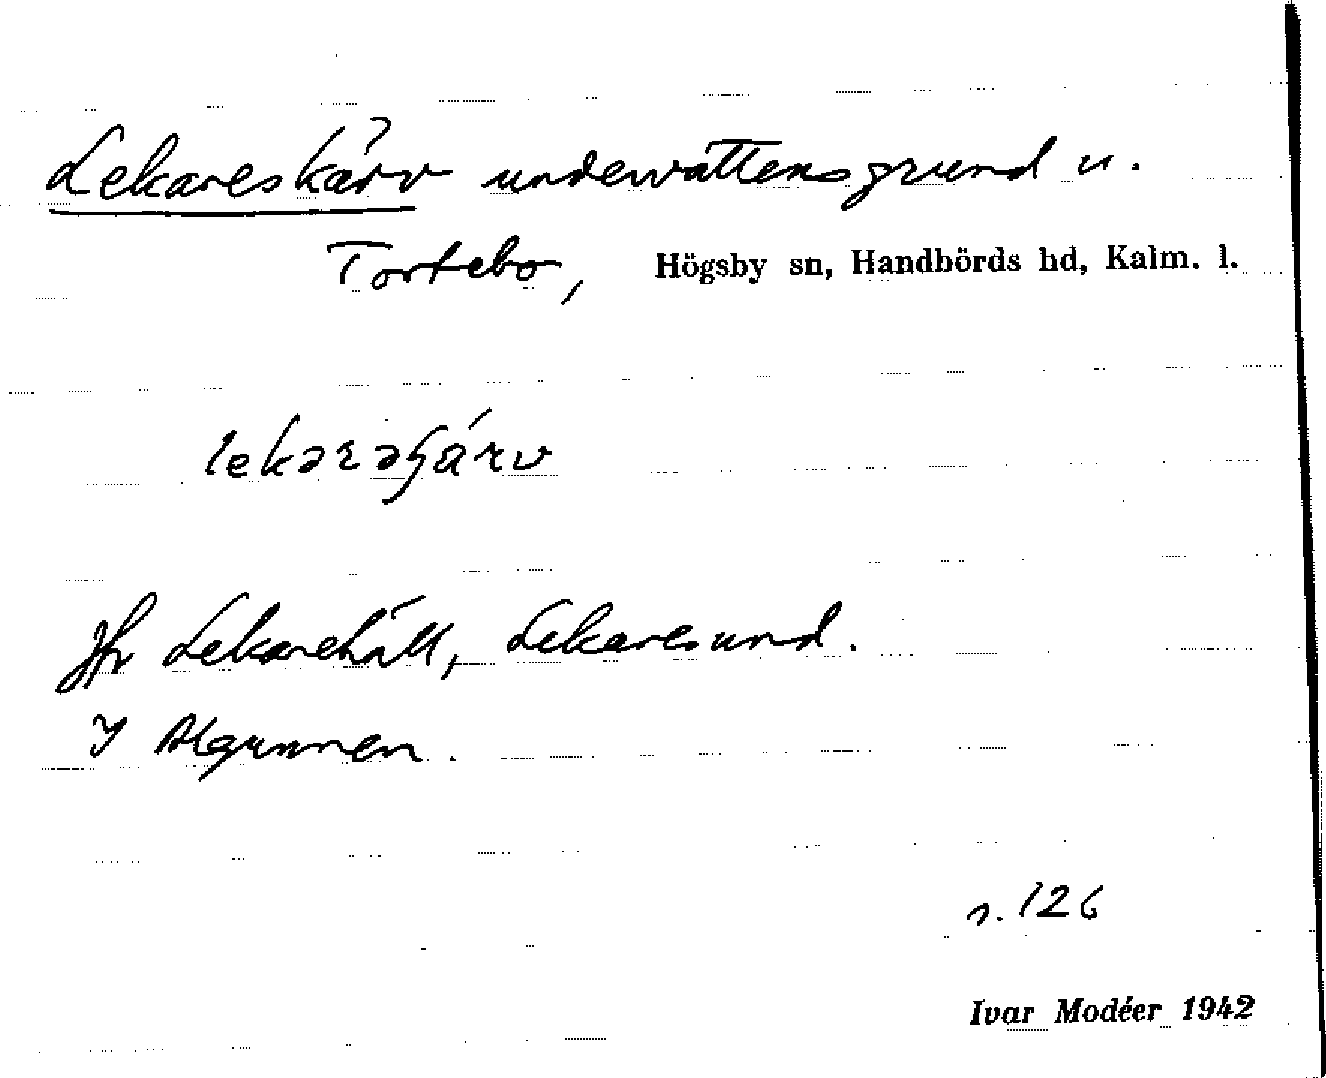 Lekareskärv undervattensgrund u.
Tortebo, Högsby sn, Handbörds hd, Kalm. l.
lekarəʃárv
Jfr Lekarehäll, Lekaresund.
I Algunnen.
s. 126
Ivar Modéer 1942